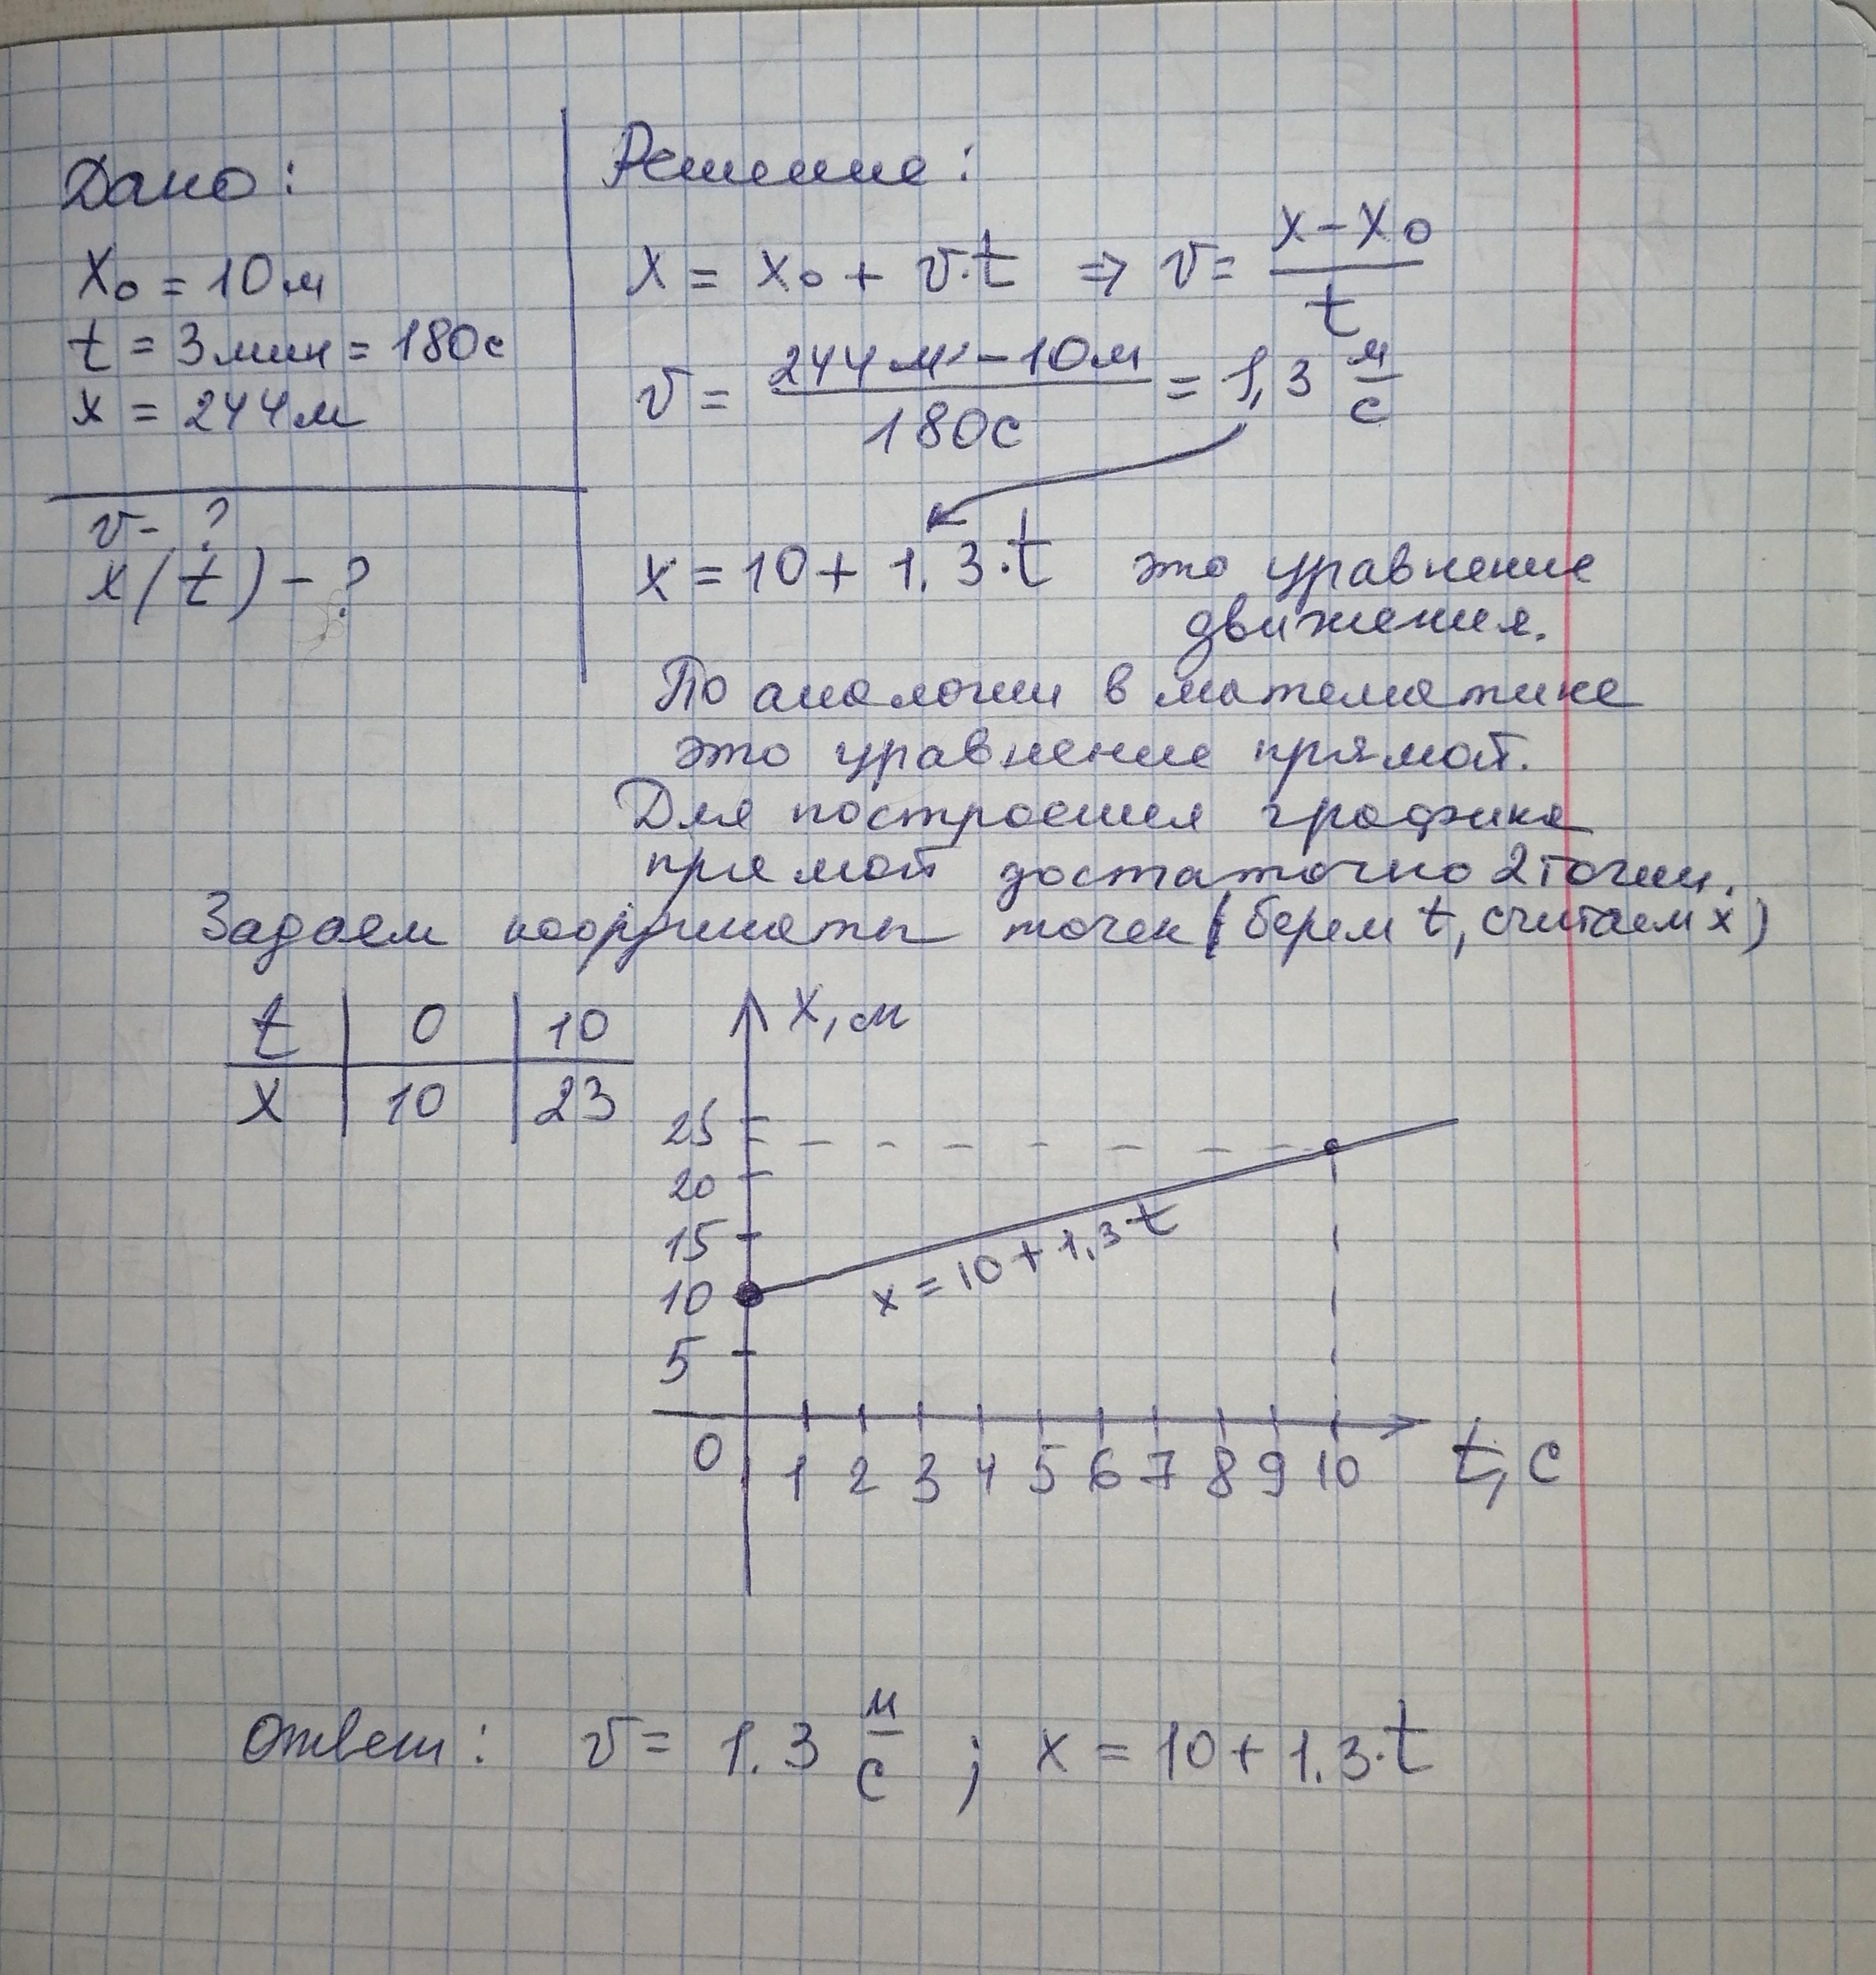 Дано:
x₀ = 10 м
t = 3 мин = 180 с
x = 244 м
v - ?
x(t) - ?
Решение:
x = x₀ + v·t ⇒ v = (x - x₀)/t
v = (244 м - 10 м)/180 с = 1,3 м/с
x = 10 + 1.3·t это уравнение
движения.
По аналогии в математике
это уравнение прямой.
Для построения графика
прямой достаточно 2 точки.
Задаем координаты точек (берем t, считаем x)
t | 0 | 10
x | 10 | 23
x, м
25
20
15
10
5
x = 10 + 1,3 t
0 1 2 3 4 5 6 7 8 9 10 t, с
Ответ: v = 1.3 м/с ; x = 10 + 1.3·t